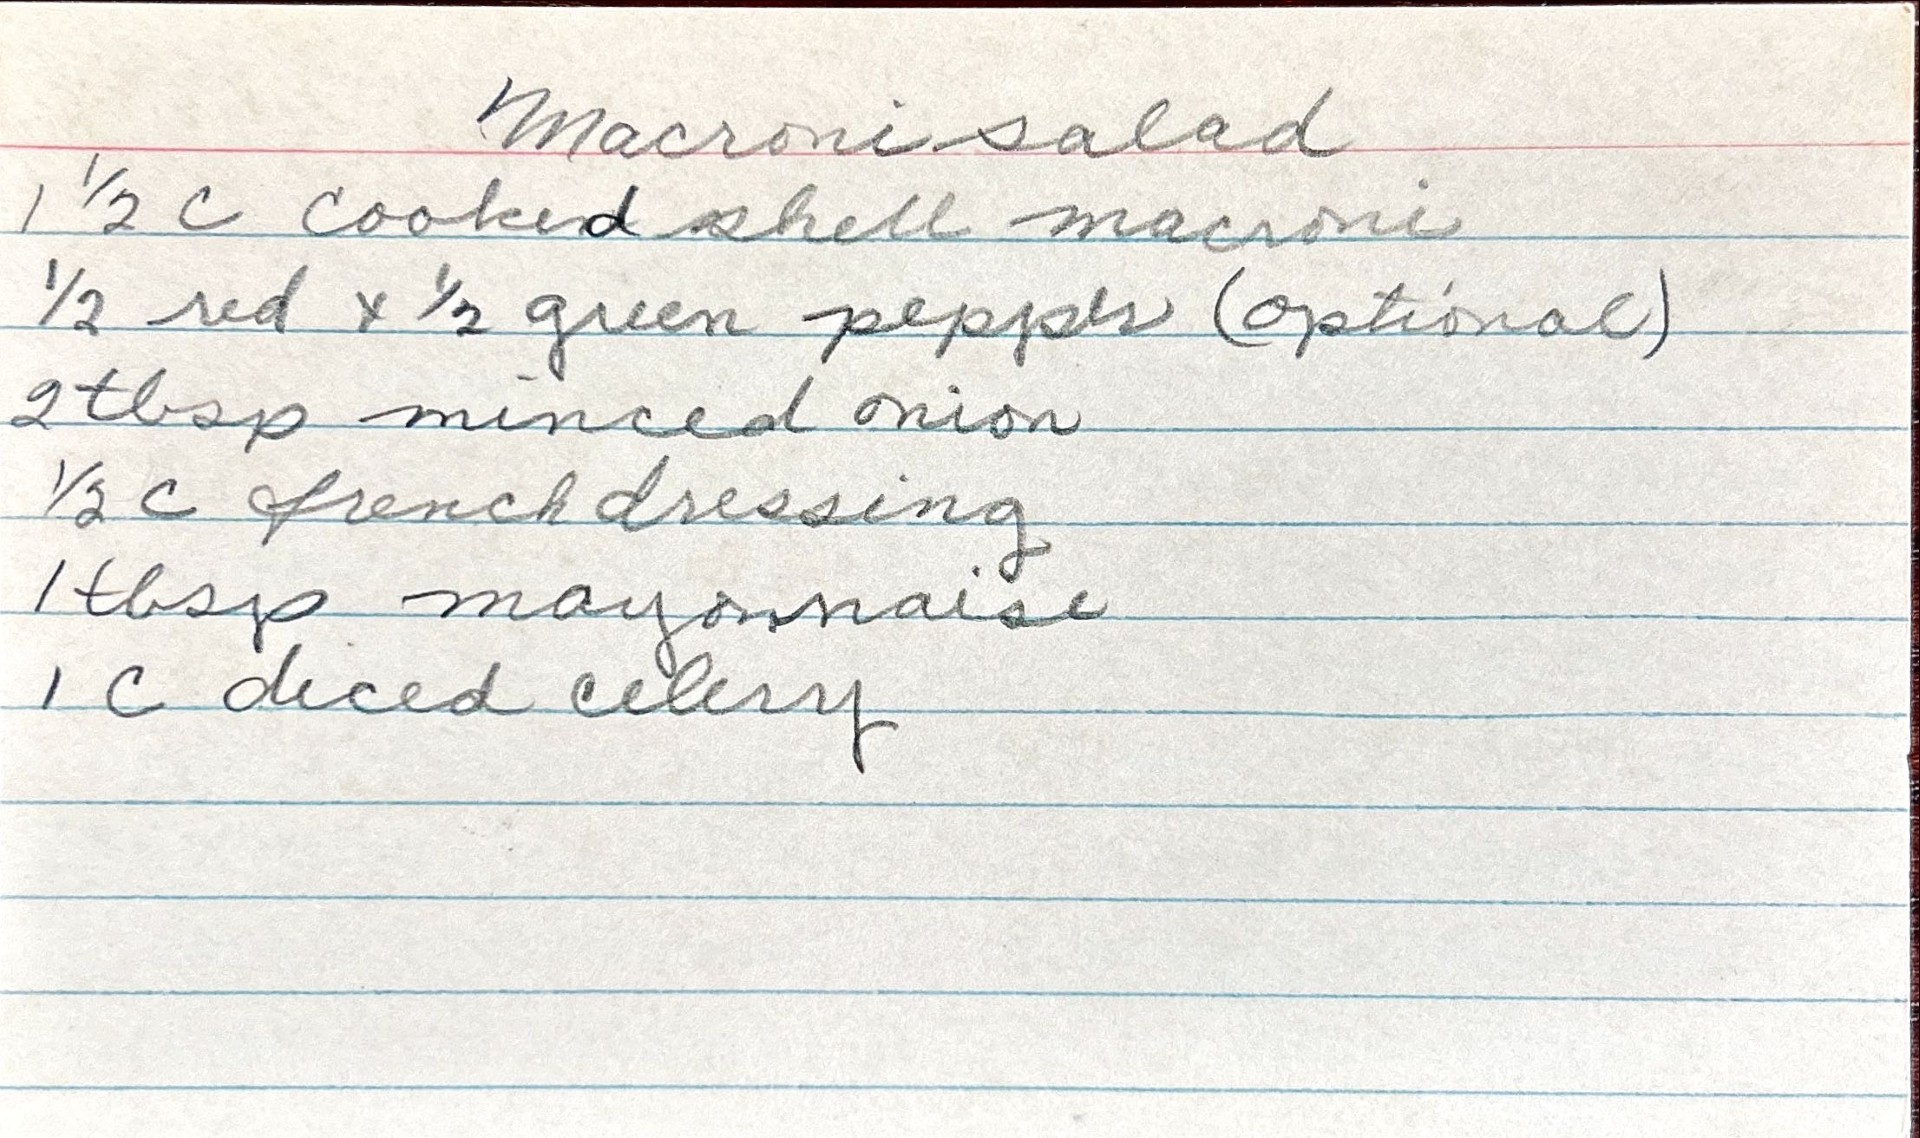 Macroni salad
1 1/2 c cooked shell macroni
1/2 red & 1/2 green pepprs (optional)
2 tbsp minced onion
1/2 c french dressing
1 tbsp mayonnaise
1 c diced celery